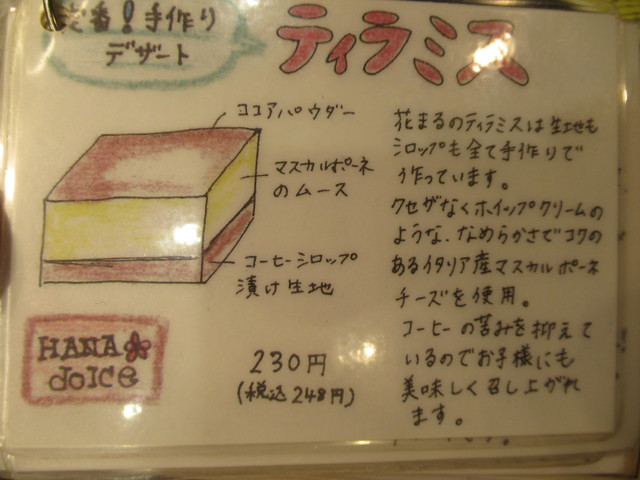 定番!手作り
デザート
ティラミス
ココアパウダー
マスカルポーネ
のムース
コーヒーシロップ
漬け生地
HANA
dolce
230円
(税込248円)
花まるのティラミスは生地も
シロップも全て手作りで
う作っています。
クセがなくホイップクリームの
ような、なめらかさでコクの
あるイタリア産マスカルポーネ
チーズを使用。
コーヒーの苦みを抑えて
いるのでお子様にも
美味しく召し上がれ
ます。